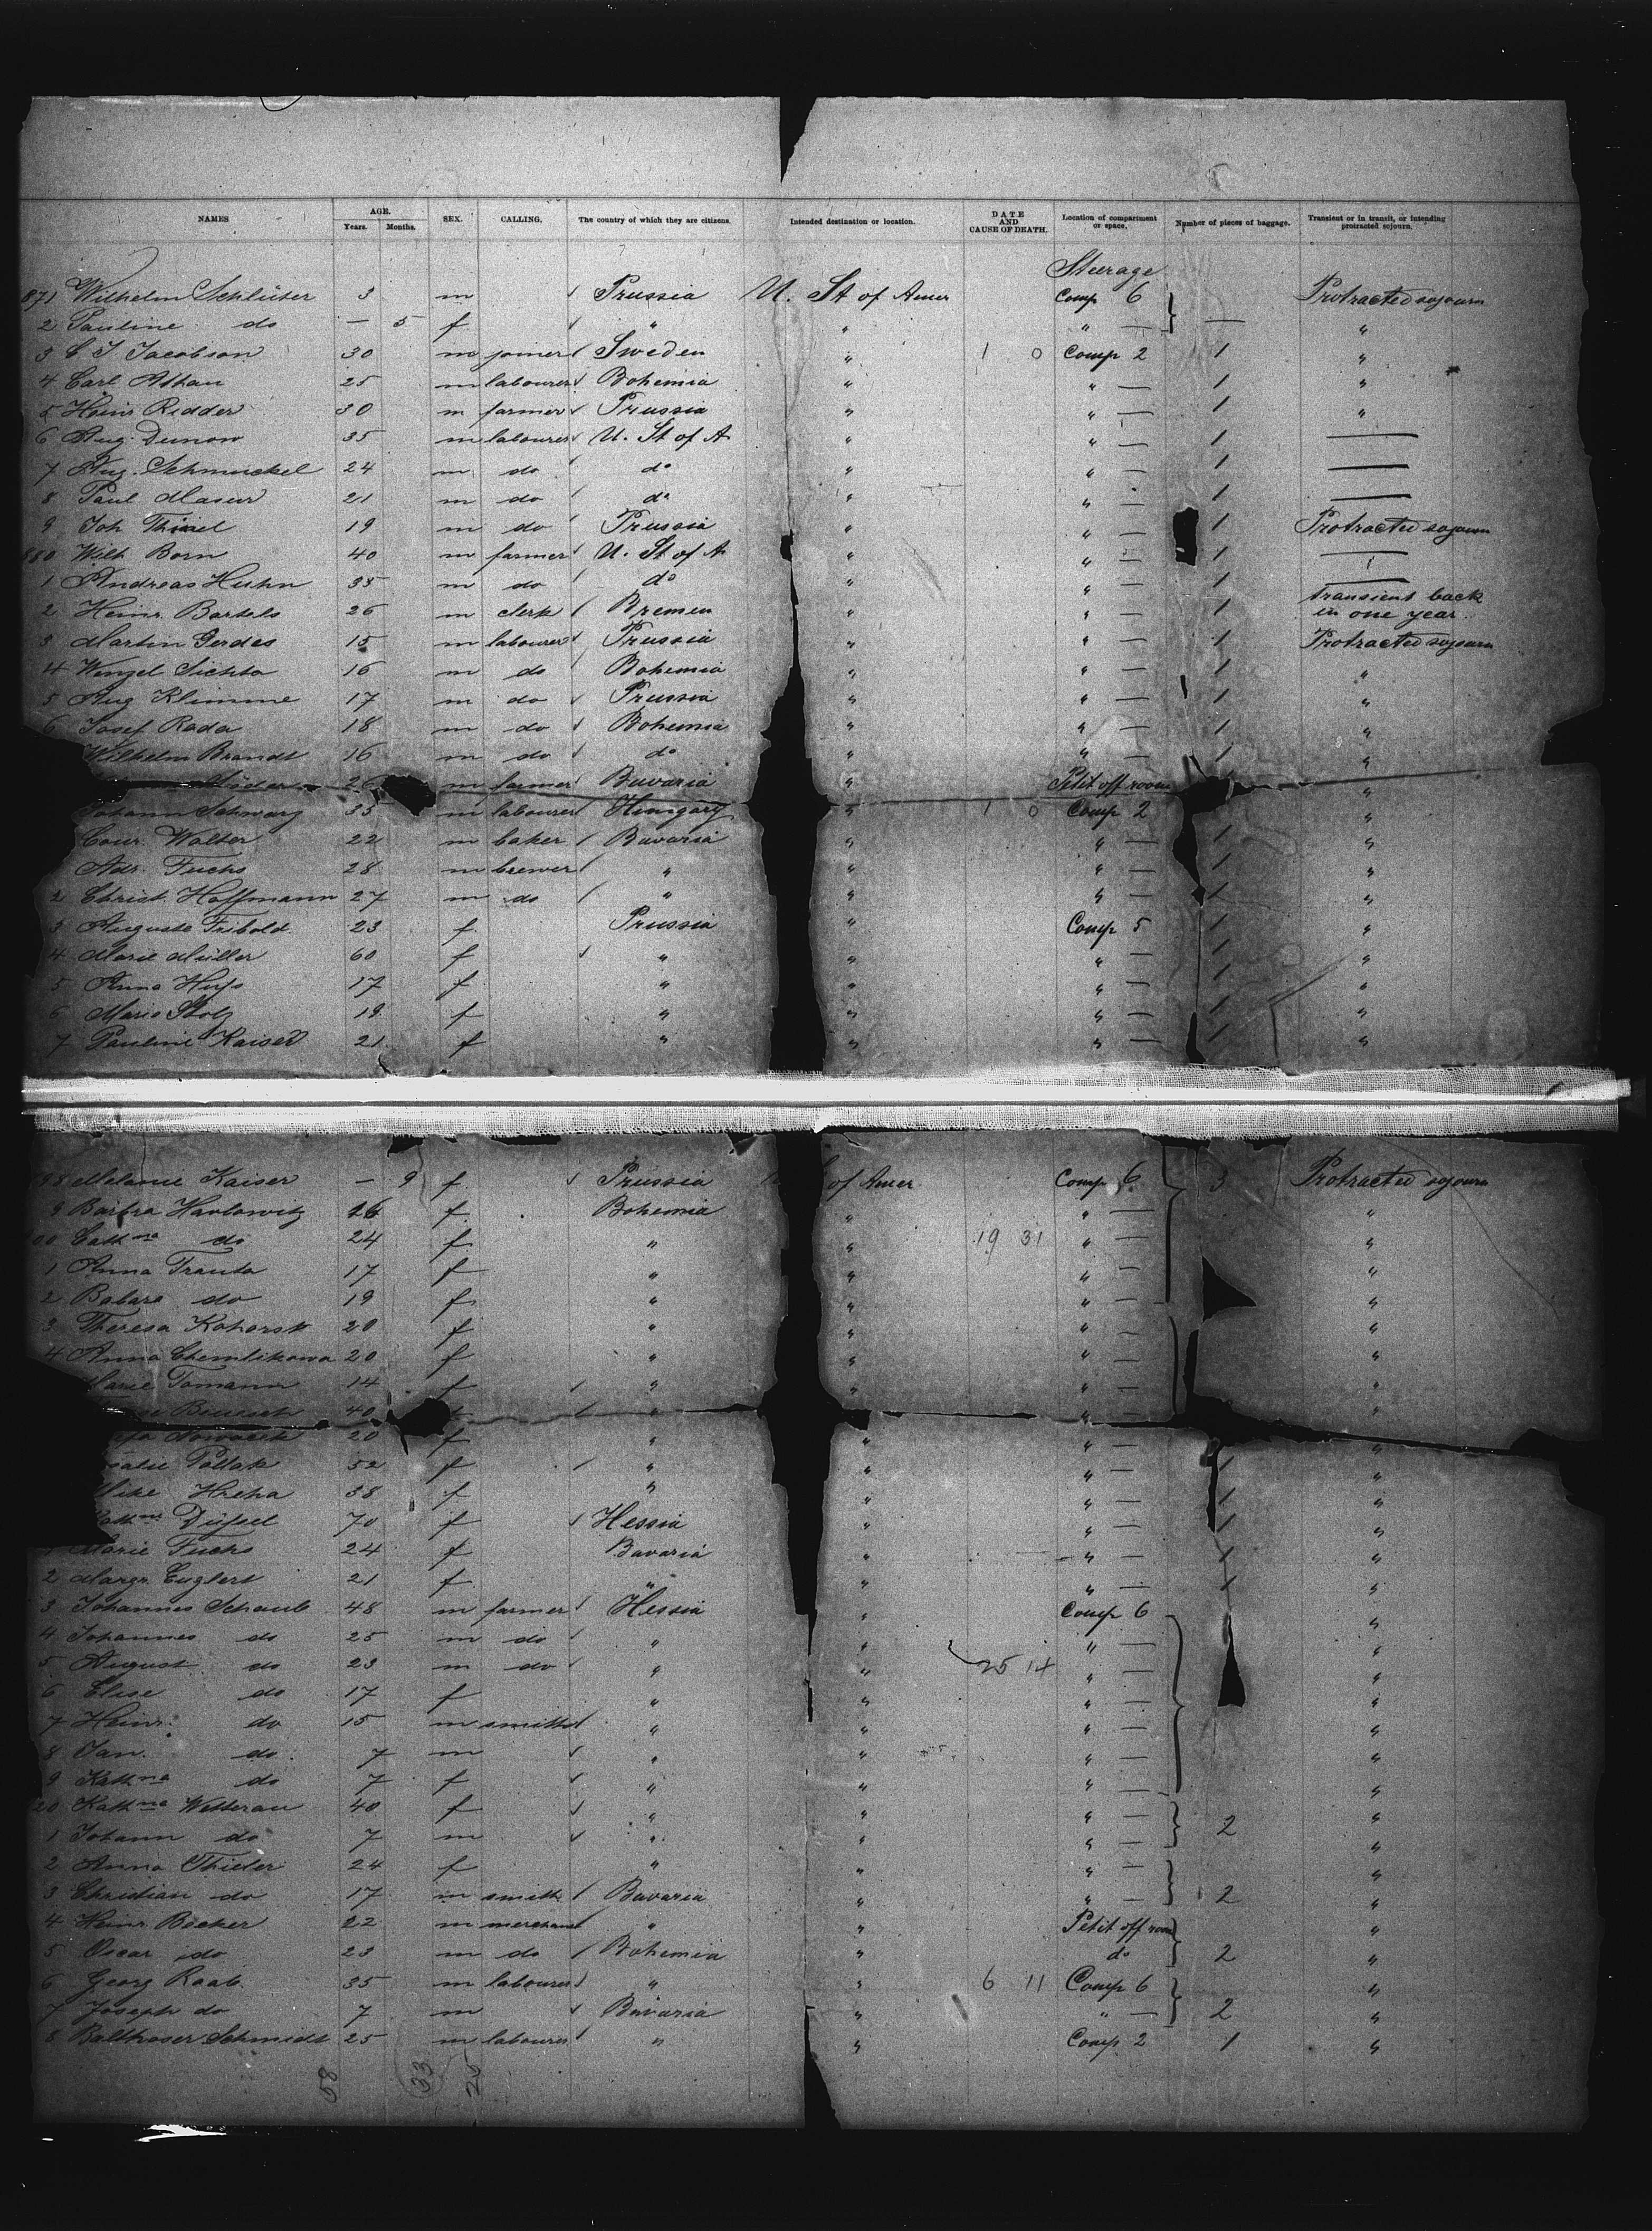 NAMES AGE. Years. Months. SEX. CALLING. The country of which they are citizens. Intended destination or location. DATE AND CAUSE OF DEATH. Location of compartment or space. Number of pieces of baggage. Transient or in transit, or intending protracted sojourn.
Steerage
871 Wilhelm Schlüter 3 m Prussia U. St of Amer Comp 6 Protracted sojourn
2 Pauline do — 5 f " " " — — "
3 C J Jacobson 30 m joiner Sweden " 1 0 Comp 2 1 "
4 Carl 25 m labourer Bohemia " " — 1 "
5 Heinr Ridder 30 m farmer Prussia " " — 1 "
6 Aug. Dumow 35 m labourer U. St of A " " — 1 —
7 Aug. Schmuckel 24 m do do " " — 1 —
8 Paul Masur 21 m do do " " — 1 —
9 Joh 19 m do Prussia " " — 1 Protracted sojourn
880 Wilh Born 40 m farmer U. St of A " " — 1 —
1 Andreas Huhn 35 m do do " " — 1 —
2 Heinr. Bartels 26 m clerk Bremen " " — 1 transient back in one year.
3 Martin Gerdes 15 m labourer Prussia " " — 1 Protracted sojourn
4 Wenzel Sichta 16 m do Bohemia " " — 1 "
5 Aug Klimme 17 m do Prussia " " — 1 "
6 Josef Rada 18 m do Bohemia " " — 1 "
Wilhelm Brandt 16 m do do " " — 1 "
26 m farmer Bavaria " Petit off room "
Johann Schwarz 35 m labourer Hungary " 1 0 Comp 2 "
Conr. Walter 22 m baker Bavaria " " — 1 "
Adr. Fuchs 28 m brewer " " " — 1 "
2 Christ. Hoffmann 27 m do " " " — 1 "
3 Auguste Tribold 23 f Prussia " Comp 5 1 "
4 Marie Müller 60 f " " " — 1 "
5 Anna Huss 17 f " " " — 1 "
6 Marie Stolz 19 f " " " — 1 "
7 Pauline Kaiser 21 f " " " — 1 "
98 Melanie Kaiser — 9 f Prussia of Amer Comp 6 3 Protracted sojourn
9 Barbra Havlowitz 26 f Bohemia " " — "
00 Cathna do 24 f " " 19 31 " — "
1 Anna Trauta 17 f " " " — "
2 Babara do 19 f " " " — "
3 Theresa Kohorst 20 f " " " — "
4 Anna Chemlikowa 20 f " " " — "
Marie Tomann 14 f " " " — "
40 " " — "
20 f " " " — "
Pollak 52 f " " " — 1 "
38 f " " " — 1 "
70 f Hessia " " — 1 "
1 Marie Fuchs 24 f Bavaria " " — 1 "
2 Margr. Englert 21 f " " " — 1 "
3 Johannes Schaub 48 m farmer Hessia " Comp 6 "
4 Johannes do 25 m do " " " — "
5 August do 23 m do " " 25 14 " — "
6 Elise do 17 f " " " — "
7 Heinr. do 15 m smith " " " — "
8 Jan. do 7 m " " " — "
9 Kathna do 7 f " " " — "
20 Kathna Wetterau 40 f " " " — 2 "
1 Johann do 7 m " " " — "
2 Anna Thieler 24 f " " " — 2 "
3 Christian do 17 m smith Bavaria " " — "
4 Heinr. Bäcker 22 m merchant " " Petit off room 2 "
5 Oscar do 23 m do Bohemia " do "
6 Georg Raab 35 m labourer " " 6 11 Comp 6 2 "
7 Joseph do 7 m Bavaria " " — "
8 Balthaser Schmidt 25 m labourer " " Comp 2 1 "
58 33 25